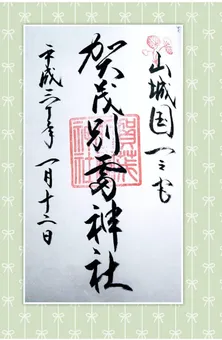 山城国一之宮
賀茂別雷神社
平成三十年一月十二日